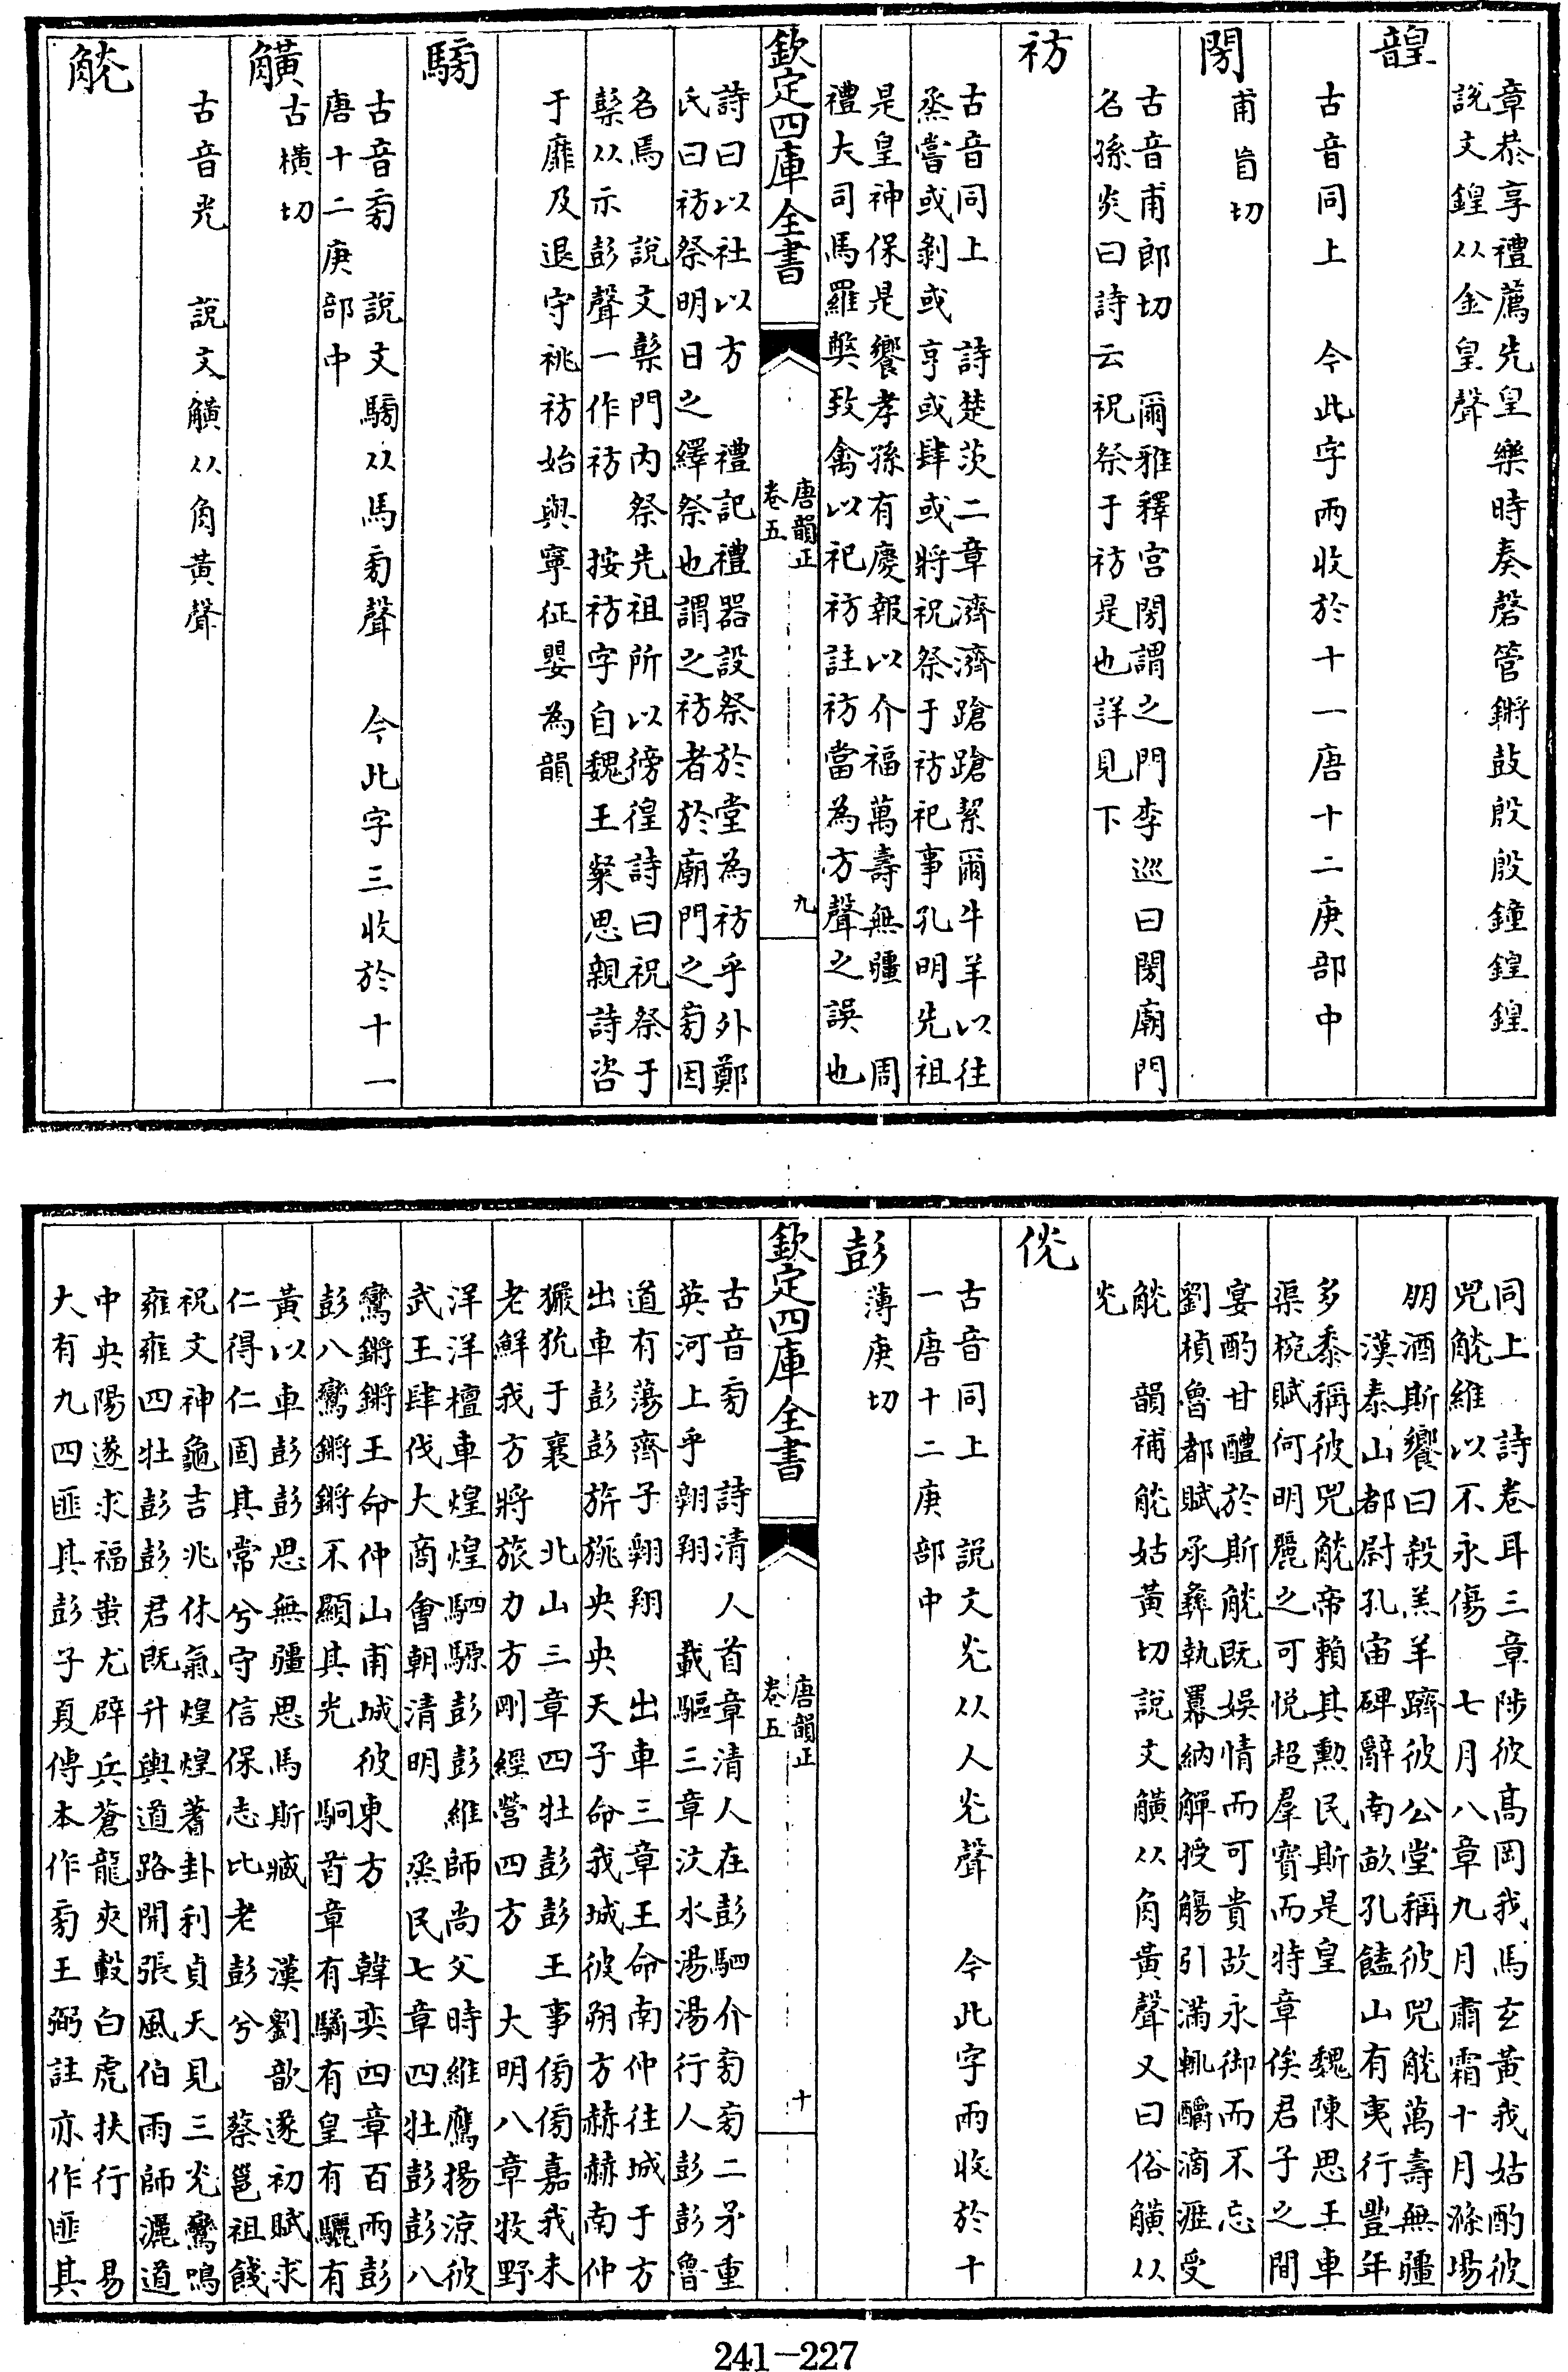 章恭享禮薦先皇樂時奏磬管鏘鼓殷殷鐘鍠鍠
說文鍠从金皇聲
韹
古音同上　今此字兩收於十一唐十二庚部中
閍
甫盲切
古音甫郎切　爾雅釋宫閍謂之門李巡曰閍廟門
名孫炎曰詩云祝祭于祊是也詳見下
祊
古音同上　詩楚茨二章濟濟蹌蹌絜爾牛羊以往
烝嘗或剝或亨或肆或將祝祭于祊祀事孔明先祖
是皇神保是饗孝孫有慶報以介福萬壽無疆　周
禮大司馬羅獘致禽以祀祊註祊當為方聲之誤也
欽定四庫全書
唐韻正
卷五
九
詩曰以社以方　禮記禮器設祭於堂為祊乎外鄭
氏曰祊祭明日之繹祭也謂之祊者於廟門之㫄因
名焉　說文𥛱門内祭先祖所以徬徨詩曰祝祭于
𥛱从示彭聲一作祊　按祊字自魏王粲思親詩咨
于靡及退守祧祊始與寧征嬰為韻
騯
古音㫄　說文騯从馬㫄聲　今此字三收於十一
唐十二庚部中
觵
古横切
古音光　說文觵从角黄聲
觥
同上　詩卷耳三章陟彼高岡我馬玄黄我姑酌彼
兕觥維以不永傷　七月八章九月肅霜十月滌場
朋酒斯饗曰殺羔羊躋彼公堂稱彼兕觥萬壽無疆
漢泰山都尉孔宙碑辭南畝孔饁山有夷行豐年
多黍稱彼兕觥帝賴其勲民斯是皇　魏陳思王車
渠椀賦何明麗之可悅超羣寳而特章俟君子之閒
宴酌甘醴於斯觥既娛情而可貴故永御而不忘
劉楨魯都賦承彝執羃納觶授觴引滿輒釂滴瀝受
觥　韻補觥姑黄切說文觵从角黄聲又曰俗觵从
光
侊
古音同上　說文侊从人光聲　今此字兩收於十
一唐十二庚部中
彭
薄庚切
欽定四庫全書
唐韻正
卷五
十
古音㫄　詩清人首章清人在彭駟介㫄㫄二矛重
英河上乎翱翔　載驅三章汶水湯湯行人彭彭魯
道有蕩齊子翱翔　出車三章王命南仲往城于方
出車彭彭旂旐央央天子命我城彼朔方赫赫南仲
玁狁于襄　北山三章四牡彭彭王事傍傍嘉我未
老鮮我方將旅力方剛經營四方　大明八章牧野
洋洋檀車煌煌駟騵彭彭維師尚父時維鷹揚涼彼
武王肆伐大商會朝清明　烝民七章四牡彭彭八
鸞鏘鏘王命仲山甫城彼東方　韓奕四章百兩彭
彭八鸞鏘鏘不顯其光　駉首章有驈有皇有驪有
黄以車彭彭思無疆思馬斯臧　漢劉歆遂初賦求
仁得仁固其常兮守信保志比老彭兮　蔡邕祖餞
祝文神龜吉兆休氣煌煌蓍卦利貞天見三光鸞鳴
雍雍四牡彭彭君既升輿道路開張風伯雨師灑道
中央陽遂求福蚩尤辟兵蒼龍夾轂白虎扶行　易
大有九四匪其彭子夏傳本作㫄王弼註亦作匪其
241-227